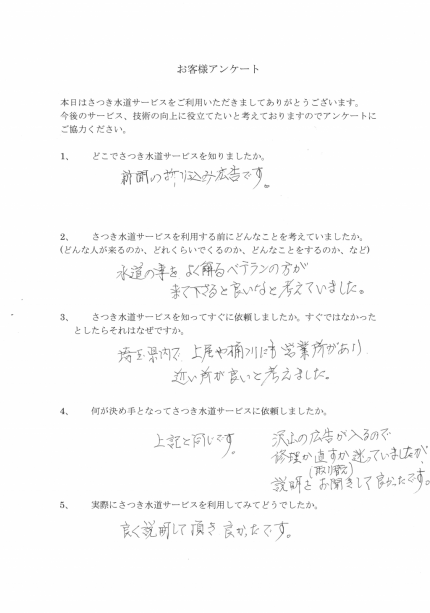 お客様アンケート
本日はさつき水道サービスをご利用いただきましてありがとうございます。
今後のサービス、技術の向上に役立てたいと考えておりますのでアンケートに
ご協力ください。
1、 どこでさつき水道サービスを知りましたか。
新聞の折り込み広告です。
2、 さつき水道サービスを利用する前にどんなことを考えていましたか。
(どんな人が来るのか、どれくらいでくるのか、どんなことをするのか、など)
水道の事をよく解るベテランの方が
来て下さると良いなと考えていました。
3、 さつき水道サービスを知ってすぐに依頼しましたか。すぐではなかった
としたらそれはなぜですか。
埼玉県内で 上尾や桶川にも営業所があり
近い所が良いと考えました。
4、 何が決め手となってさつき水道サービスに依頼しましたか。
上記と同じです。
沢山の広告が入るので
修理か直すか迷っていましたが
(取り替え)
説明をお聞きして良かったです。
5、 実際にさつき水道サービスを利用してみてどうでしたか。
良く説明して頂き良かったです。